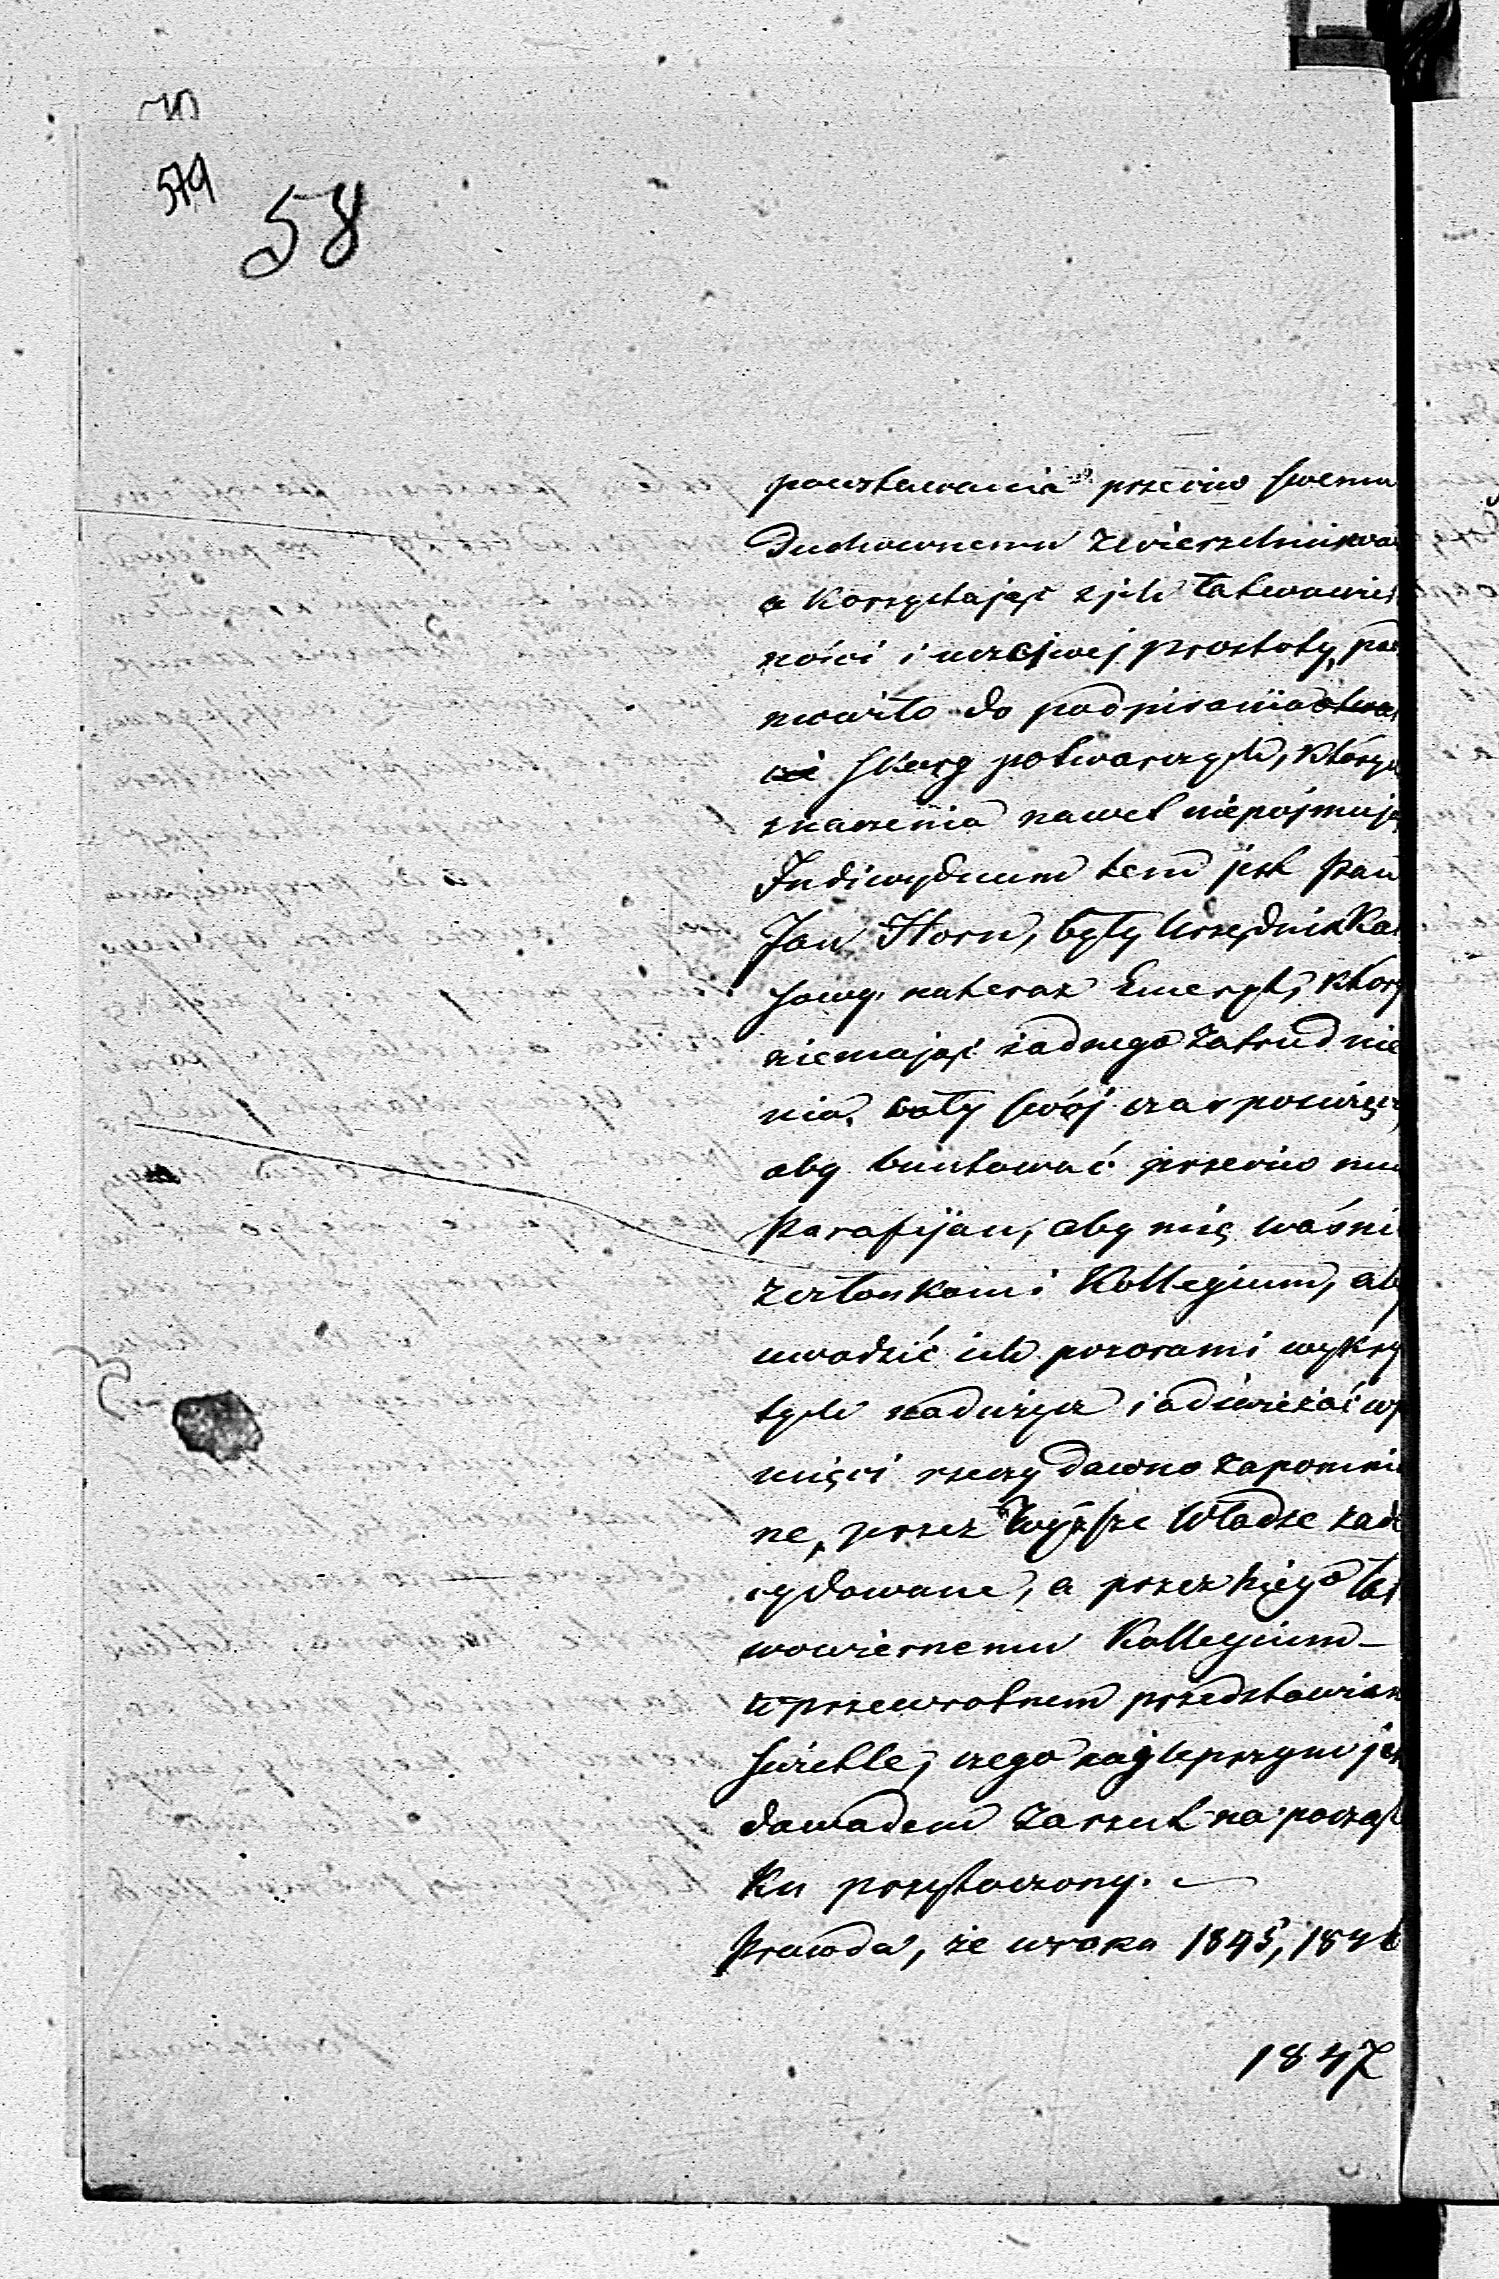 579
58
powstawania przeciw swemu
Duchownemu Zwierzchnikowi
a korzystając z ich łatwowier
ności i uczciwej prostoty, na
mówiło do podpisania
skarg potwarczych, których
znaczenia nawet niepojmują
Indiwyduum tem jest Pan
Jan Horn, były Urzędnik Ka
sowy na teraz Emeryt, który
niemając żadnego zatrudnie
nia, cały swój czas poświęca
aby buntować przeciw mu
Parafijan, aby mię waśnić
z członkami Kollegium, aby
uwodzić ich pozorami wykry
tych nadużyć i odświeżać w pa
mięci rzeczy dawno zapomnia
ne, przez Wyższe Władze zade
cydowane, a przez niego łat
wowiernemu Kollegium –
w przewrotnem przedstawiane
świetle, czego najlepszym jest
dowodem zarzut na począt
ku przytoczony. –
Prawda, że w roku 1845, 1846
1847